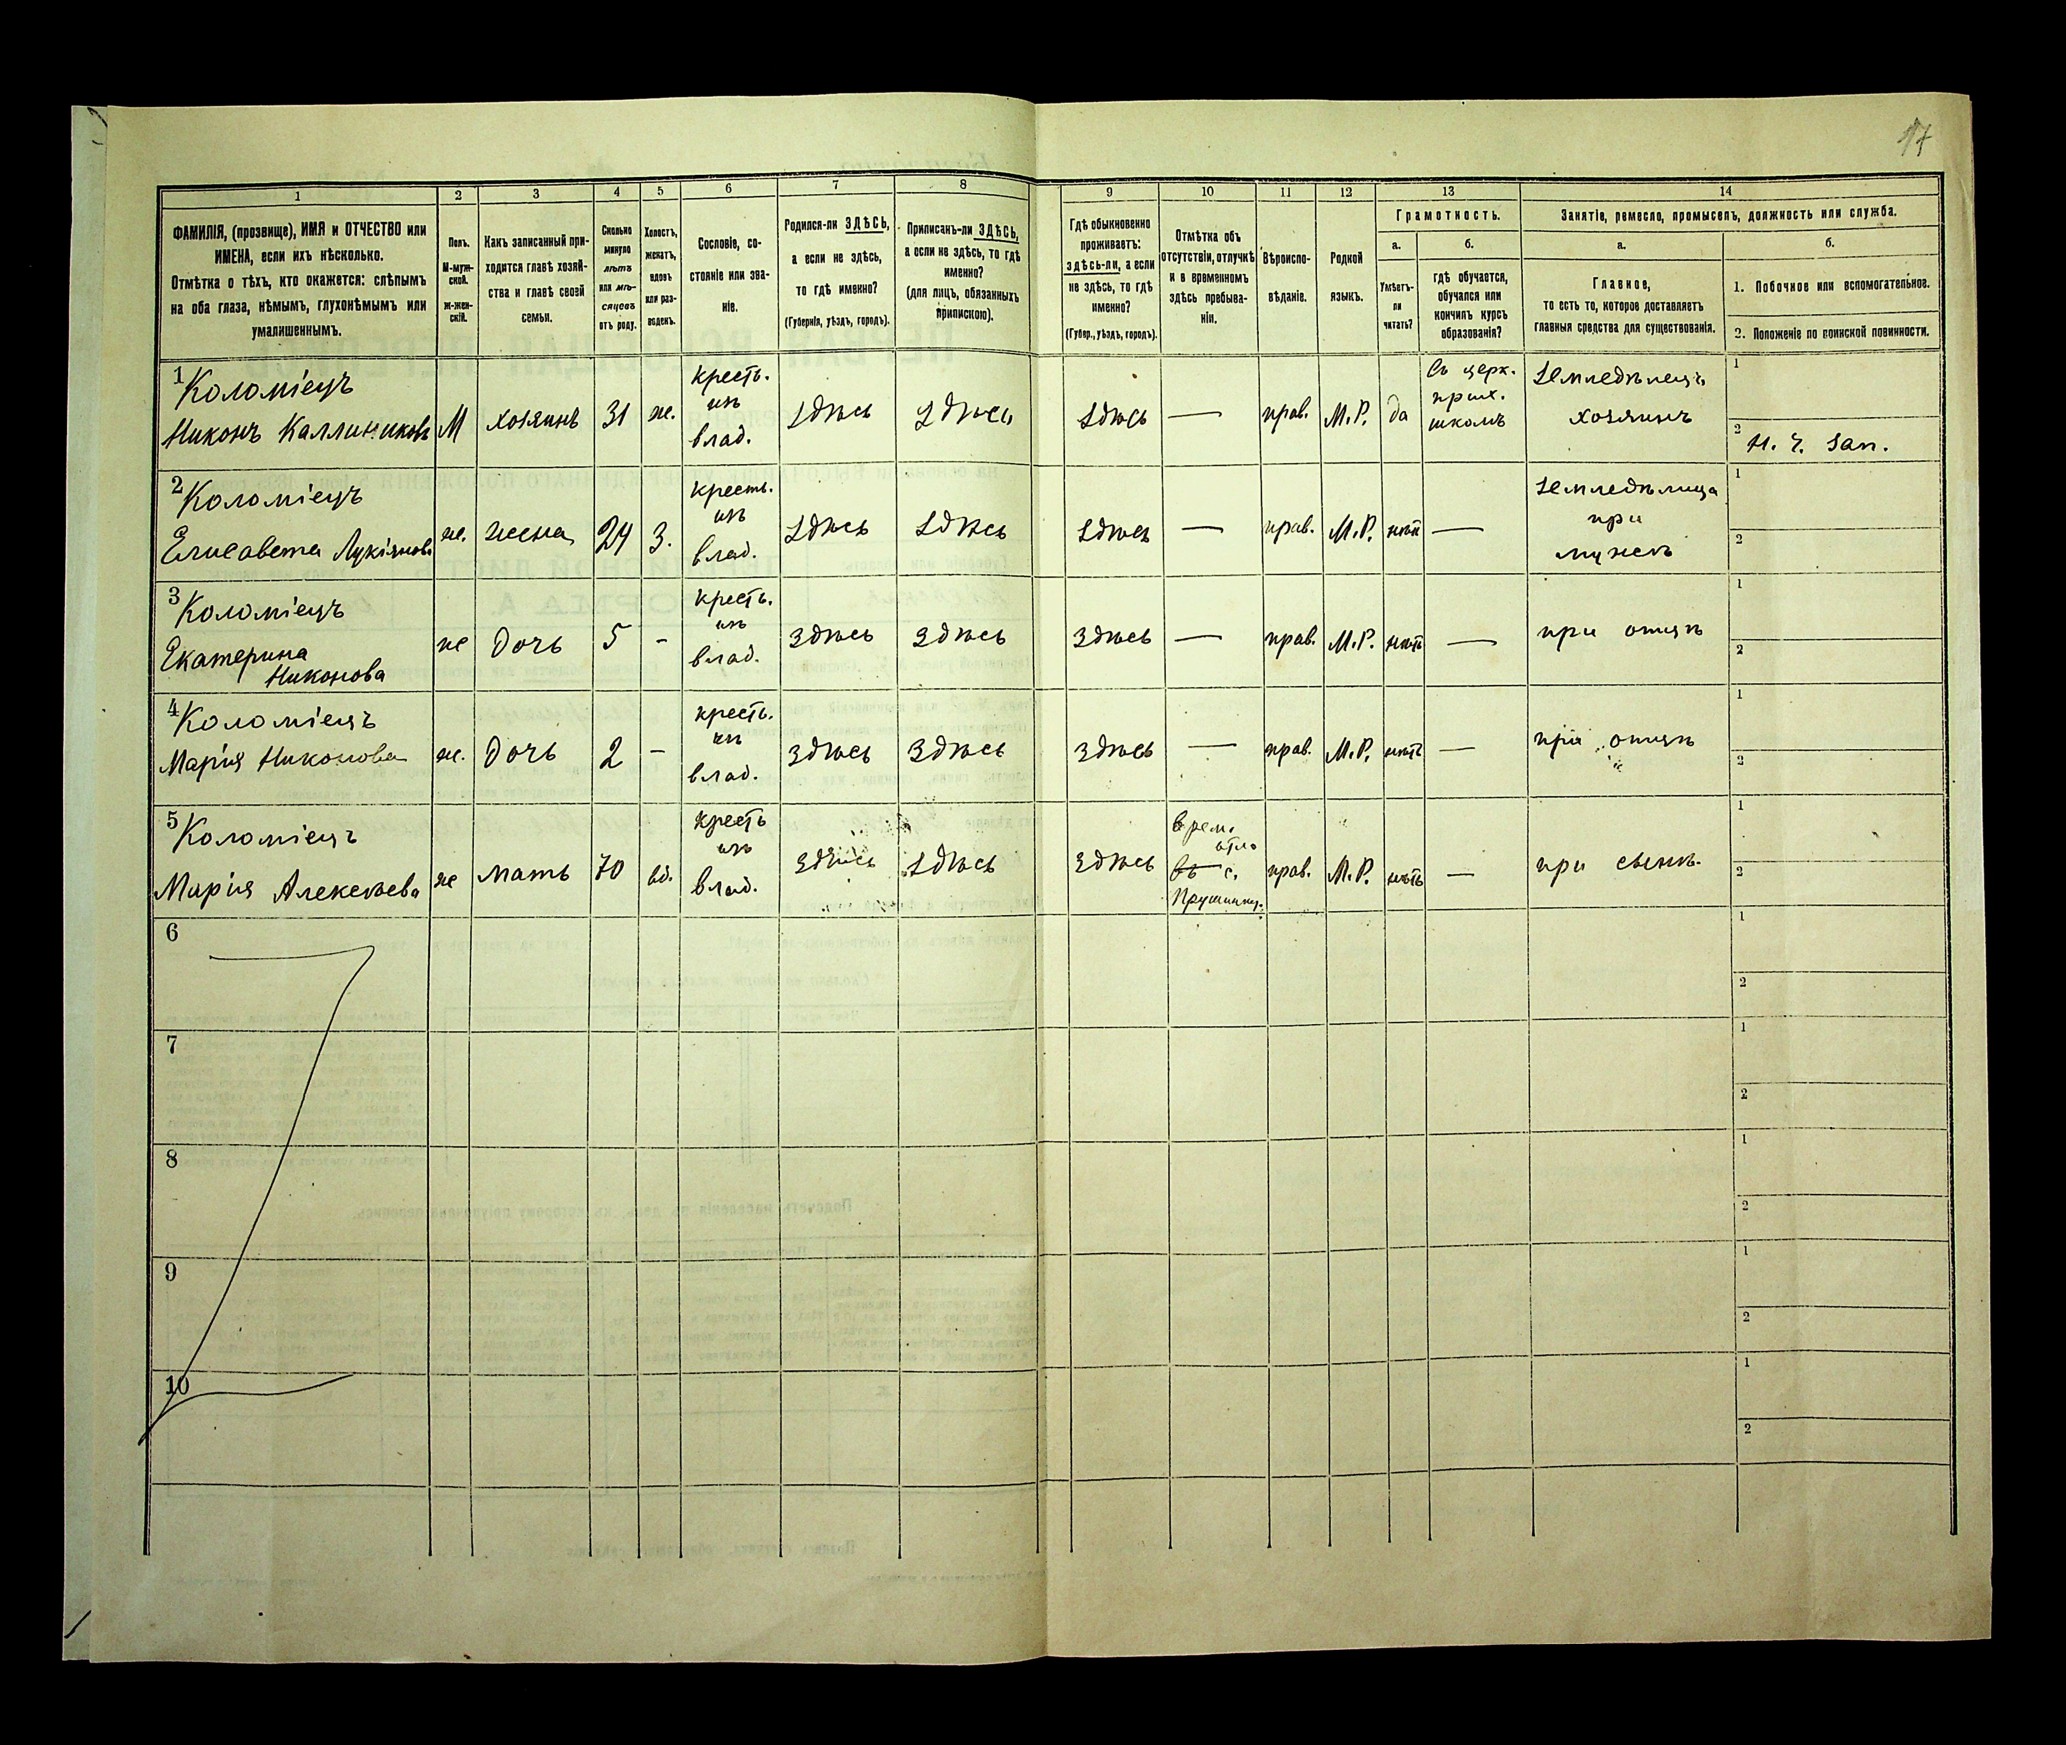 17
1 2 3 4 5 6 7 8 9 10 11 12 13 14
ФАМИЛІЯ, (прозвище), ИМЯ и ОТЧЕСТВО или
ИМЕНА, если ихъ нѣсколько.
Отмѣтка о тѣхъ, кто окажется: слѣпымъ
на оба глаза, нѣмымъ, глухонѣмымъ или
умалишеннымъ.
Полъ.
М-муж-
ской.
ж-жен-
скій.
Какъ записанный при-
ходится главѣ хозяй-
ства и главѣ своей
семьи.
Сколько
минуло
лѣтъ
или мѣ-
сяцевъ
отъ роду.
Холостъ,
женатъ,
вдовъ
или раз-
веденъ.
Сословіе, со-
стояніе или зва-
ніе.
Родился-ли ЗДѢСЬ,
а если не здѣсь,
то гдѣ именно?
(Губернія, уѣздъ, городъ).
Приписанъ-ли ЗДѢСЬ,
а если не здѣсь, то гдѣ
именно?
(для лицъ, обязанныхъ
припискою).
Гдѣ обыкновенно
проживаетъ:
здѣсь-ли, а если
не здѣсь, то гдѣ
именно?
(Губер., уѣздъ, городъ).
Отмѣтка объ
отсутствіи, отлучкѣ
и о временномъ
здѣсь пребыва-
ніи.
Вѣроиспо-
вѣданіе.
Родной
языкъ.
Грамотность.
а. б.
Умѣетъ-
ли
читать?
гдѣ обучается,
обучался или
кончилъ курсъ
образованія?
Занятіе, ремесло, промыселъ, должность или служба.
а. б.
Главное,
то есть то, которое доставляетъ
главныя средства для существованія.
1. Побочное или вспомогательное.
2. Положеніе по воинской повинности.
1 Коломіецъ
Никонъ Каллиниковъ
М
хозяинъ
31
ж.
крест.
изъ
влад.
здѣсь
здѣсь
здѣсь
—
прав.
М.Р.
да
въ церк.
прих.
школѣ
Земледѣлецъ
хозяинъ
1
2
Н. Ч. Зап.
2 Коломіецъ
Елисавета Лукіянов.
ж.
жена
24
З.
крест.
изъ
влад.
здѣсь
здѣсь
здѣсь
—
прав.
М.Р.
нѣтъ
—
Земледѣлица
при
мужѣ
1
2
3 Коломіецъ
Екатерина
Никонова
ж
Дочь
5
-
крест.
изъ
влад.
здѣсь
здѣсь
здѣсь
—
прав.
М.Р.
нѣтъ
—
при отцѣ
1
2
4 Коломіецъ
Марія Никонова
ж.
Дочь
2
-
крест.
изъ
влад.
здѣсь
здѣсь
здѣсь
—
прав.
М.Р.
нѣтъ
—
при отцѣ
1
2
5 Коломіецъ
Марія Алексѣева
ж
мать
70
вд.
крест
изъ
влад.
здѣсь
здѣсь
здѣсь
врем.
отл.
въ с.
прав.
М.Р.
нѣтъ
—
при сынѣ.
1
2
6
1
2
7
1
2
8
1
2
9
1
2
10
1
2